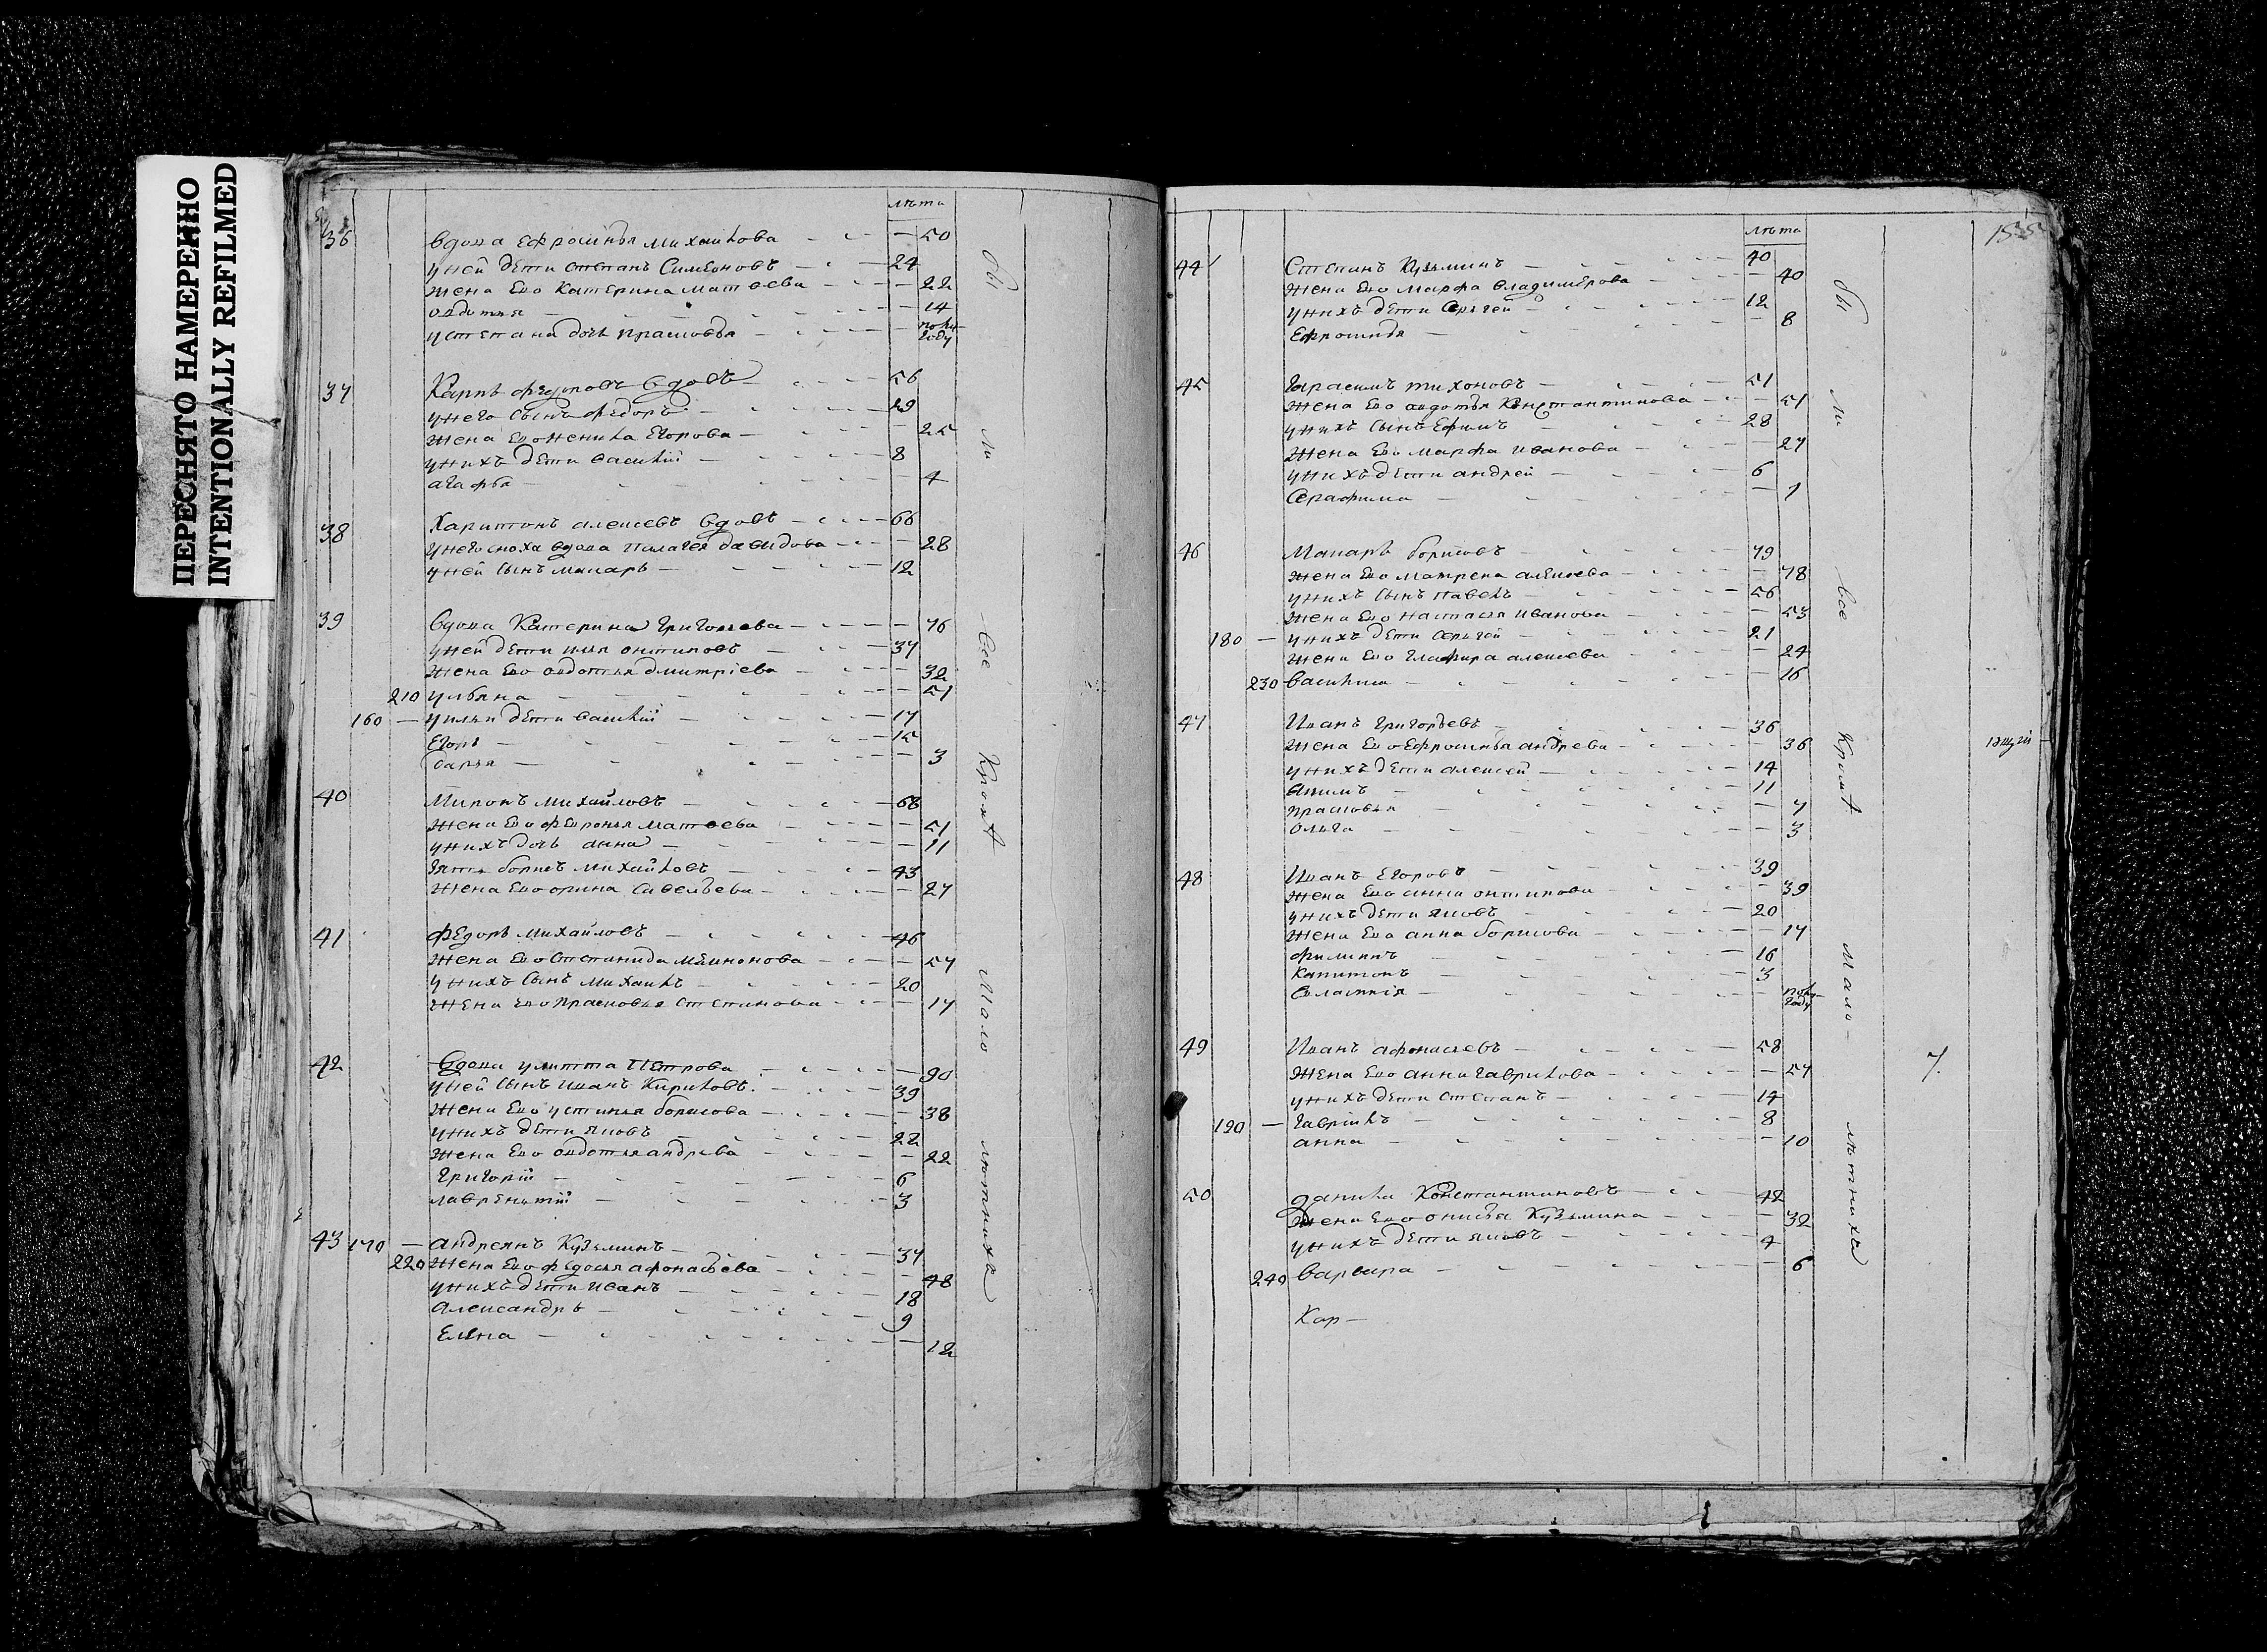 ПЕРЕСНЯТО НАМЕРЕННО
INTENTIONALLY REFILMED
лѣта
36 вдова Ефросинья михаилова 50
у ней дети степанъ Симеоновъ 24
жена Ево Катерина матвеева 22
овдотья 14
у степана дочь прасковья полугоду
37 Карпъ федоровъ вдовъ 56
у него сынъ федоръ 29
жена Ево Егорова 25
у нихъ дети василiй 8
агафья 4
38 Харитонъ алексевъ вдовъ 66
у него сноха вдова пилагея давидова 28
у ней сынъ макаръ 12
39 вдова Катерина Григорьева 76
у ней дети илья онтиповъ 37
жена Ево овдотья дмитрiева 32
210 ульяна 51
160 у ильи дети василiй 17
Егоръ 15
дарья 3
40 Миронъ михайловъ 68
жена Ево февронья матвеева 51
у нихъ дочь анна 11
зять борисъ михайловъ 43
жена Ево орина савельева 27
41 федоръ михайловъ 46
жена Ево степанида 57
у нихъ сынъ михаилъ 20
жена Ево прасковья степанова 17
42 вдова улитта петрова 90
у ней сынъ иванъ Кириловъ 39
жена Ево устинья борисова 38
у нихъ дети яковъ 22
жена Ево овдотья андрева 22
григорiй 6
лаврентiй 3
43 170 андреянъ Кузьминъ 37
220 жена Ево федосья афонасьева 48
у нихъ дети иванъ 18
александръ 9
Елена 12
бы
ли
все
Кромѣ
мало
лѣтнихъ
лѣта
44 Степанъ Кузьминъ 40
жена Ево марфа владимерова 40
у нихъ дети сергей 12
Ефросинья 8
45 Герасимъ тихоновъ 51
жена Ево овдотья Константинова 51
у нихъ сынъ Ефимъ 28
жена Ево марфа иванова 27
у нихъ дети андрей 6
Серафима 1
46 Макаръ борисовъ 79
жена Ево матрена алексева 78
у нихъ сынъ павелъ 56
жена Ево настасья иванова 53
180 у нихъ дети сергей 21
жена Ево глафира алексева 24
230 василиса 16
47 Иванъ григорьевъ 36
жена Ево Ефросинья андрева 36
у нихъ дети алексей 14
акимъ 11
прасковья 7
ольга 3
48 Иванъ Егоровъ 39
жена Ево анна онтипова 39
у нихъ дети яковъ 20
жена Ево анна борисова 17
филипъ 16
капитонъ 3
полугоду
49 Иванъ афонасьевъ 58
жена Ево анна гаврилова 57
у нихъ дети степанъ 14
190 гаврiилъ 8
анна 10
50 данила Константиновъ 42
жена Ево онисья Кузьмина 32
у нихъ дети яковъ 4
240 варвара 6
Кар
бы
ли
все
Кромѣ
мало
лѣтнихъ
7.